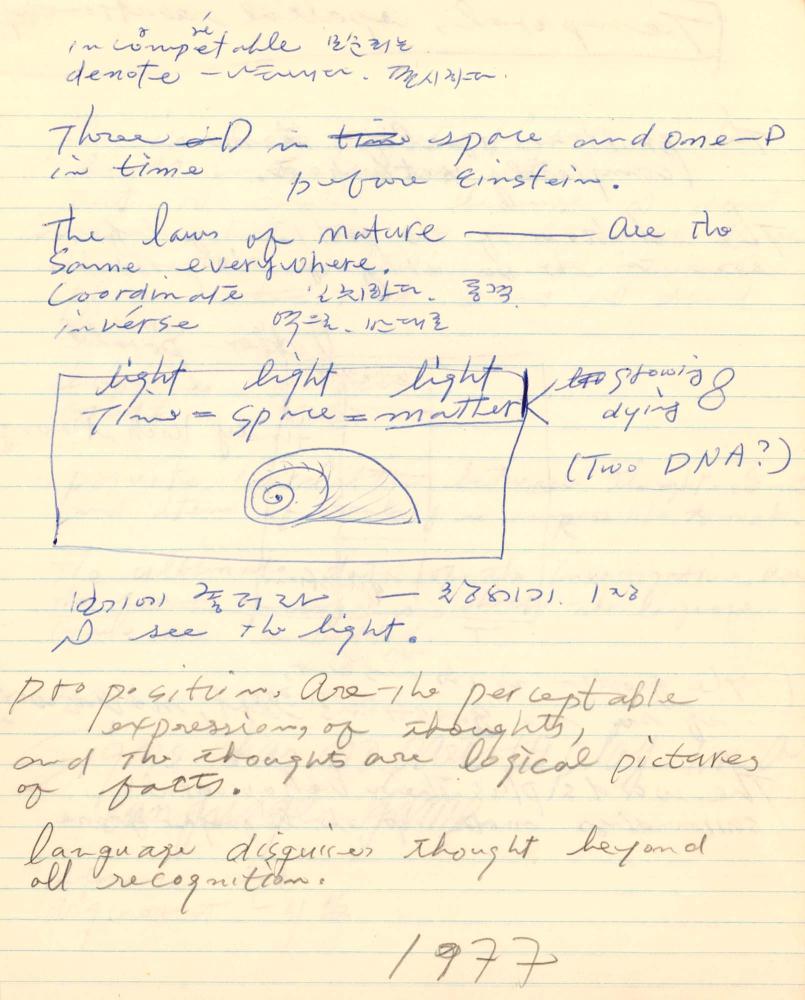 ré
incompetable 모순되는
denote - 나타내다. 표시하다.
Three-D in time space and one-D
in time before Einstein.
The laws of nature —— Are the
same everywhere.
Coordinate 일치하다. 동격
invérse 역으로. 반대로
light light light
Time = space = matter
growing
dying
(Two DNA?)
I see the light.
Proposition. Are the perceptable
expressions of thoughts,
and the thoughts are logical pictures
of facts.
language disguises thought beyond
all recognition.
1977